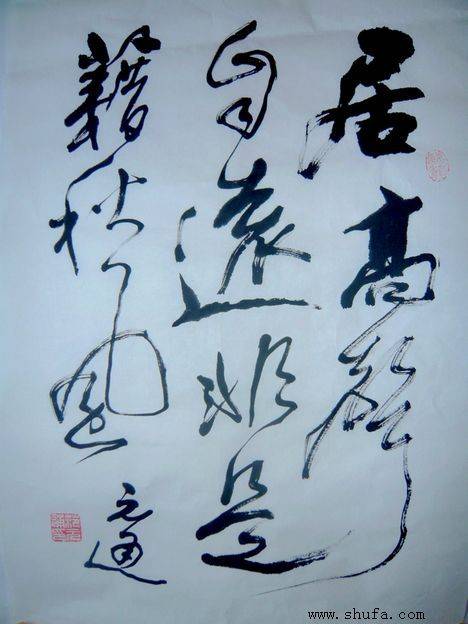 居高聲
自遠非是
藉秋風
元通
www.shufa.com